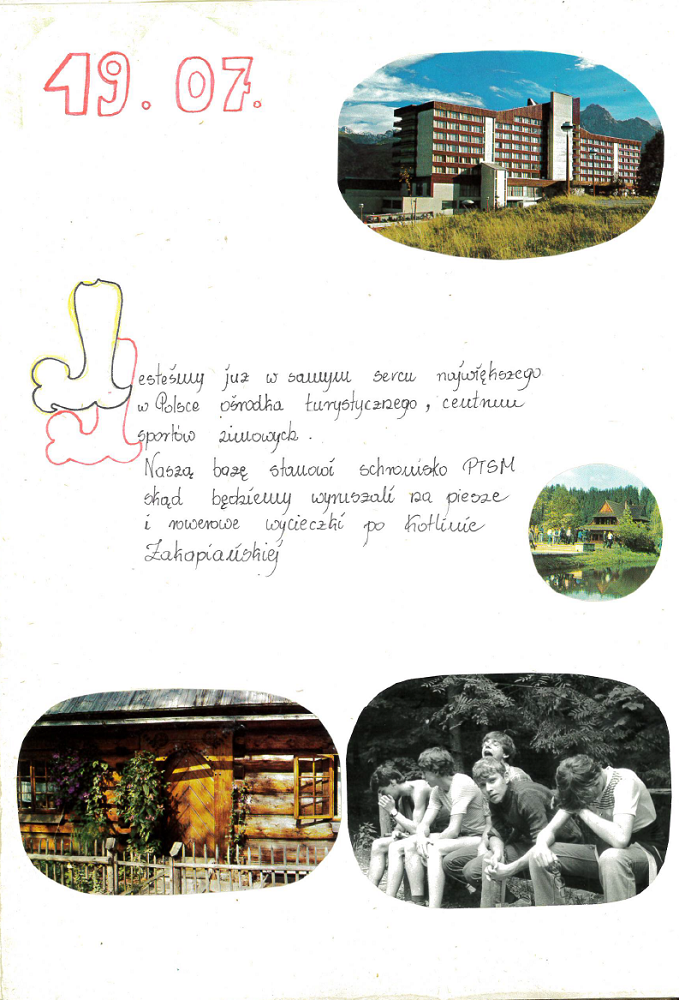 19. 07.
Jesteśmy już w samym sercu największego
w Polsce ośrodka turystycznego, centrum
sportów zimowych.
Naszą bazę stanowi schronisko PTSM
skąd będziemy wyruszali na piesze
i rowerowe wycieczki po Kotlinie
Zakopiańskiej